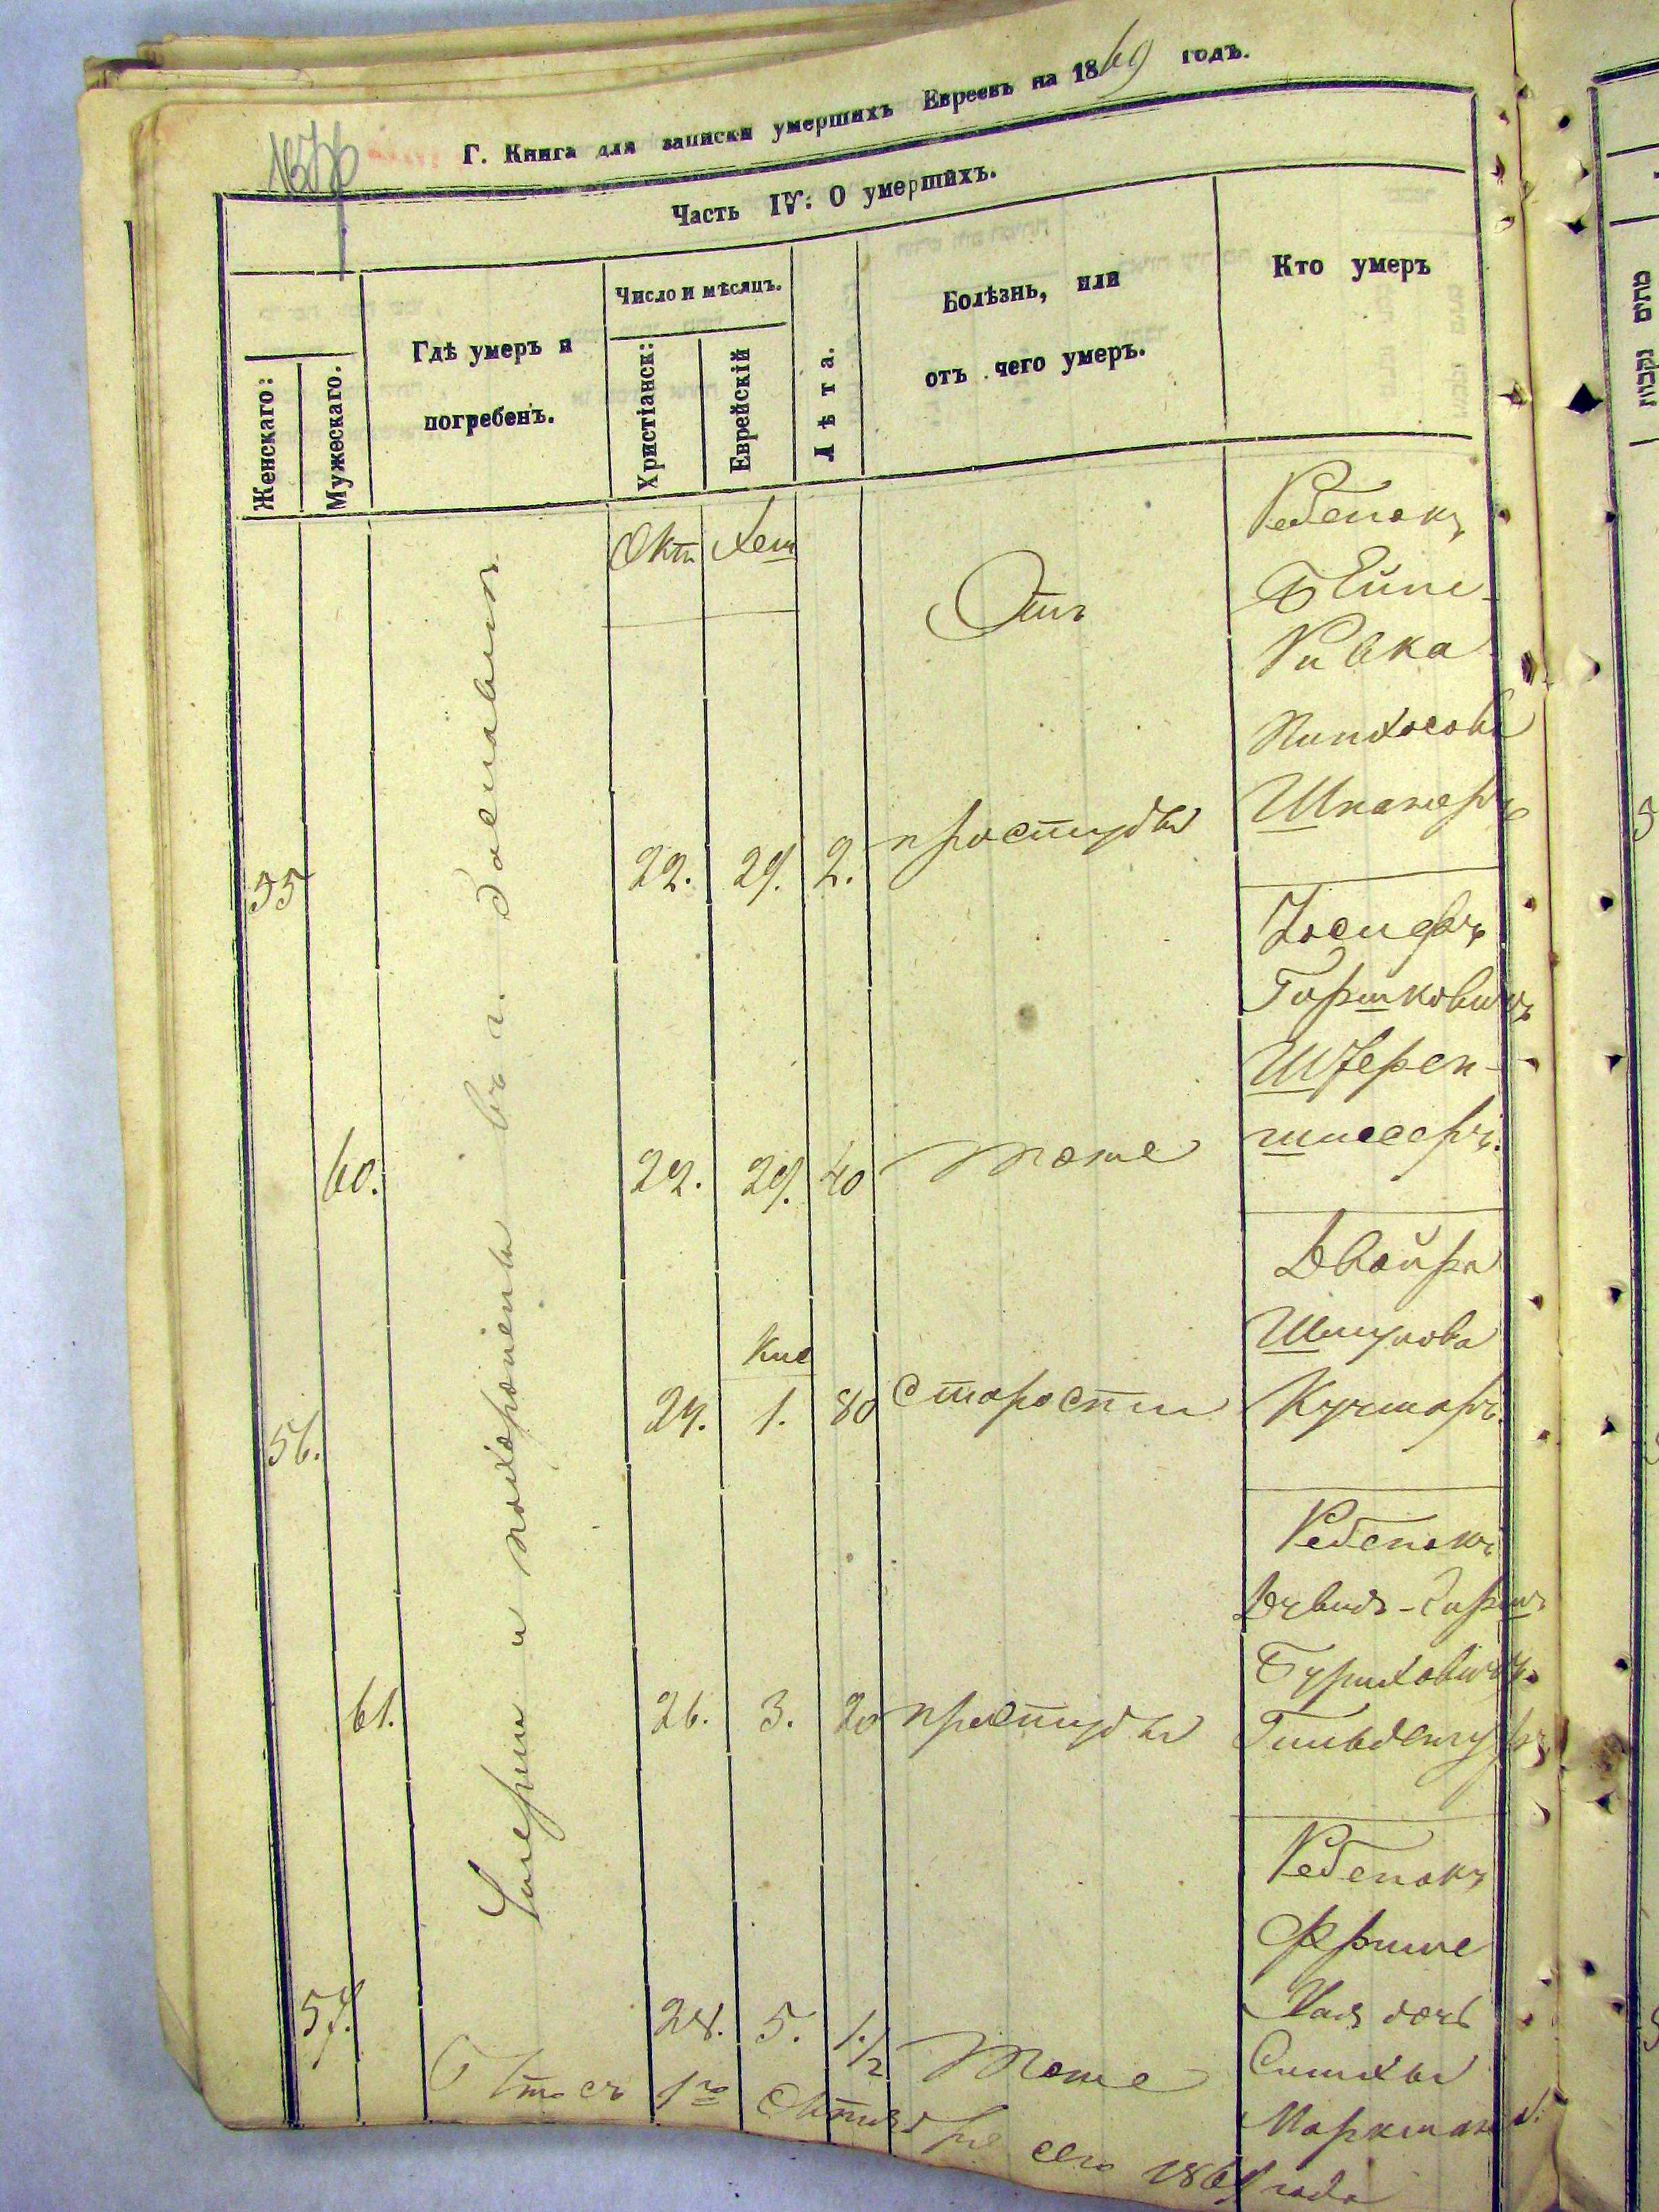 1856
Г. Книга для записки умершихъ Евреевъ на 1869 годъ.
Часть IV. О умершихъ.
Женскаго:
Мужескаго.
Гдѣ умеръ и
погребенъ.
Число и мѣсяцъ.
Христіанск:
Еврейскій
Лѣта.
Болѣзнь, или
отъ чего умеръ.
Кто умеръ
מתים נקבות
Умерли и похоронены въ г.
Окт Хеш
55 22. 29. 2. Отъ простуды
Ребенокъ
Бейле-
Ривка
Пинхосова
Шканеръ
60. 22. 29. 40 тоже
Іосифъ
Гершковичъ
Штерен-
шиссеръ.
Кис
56. 24. 1. 80 Старости
Двойра
Шмулова
Кучмаръ
61. 26. 3. 20 простуды
Ребенокъ
Дувидъ-Гершъ
Бурихови
57. 28. 5. 1 1/2 тоже
Ребенокъ
Фриме
Хая дочь
Симхи
Маркман
сего 1869 года